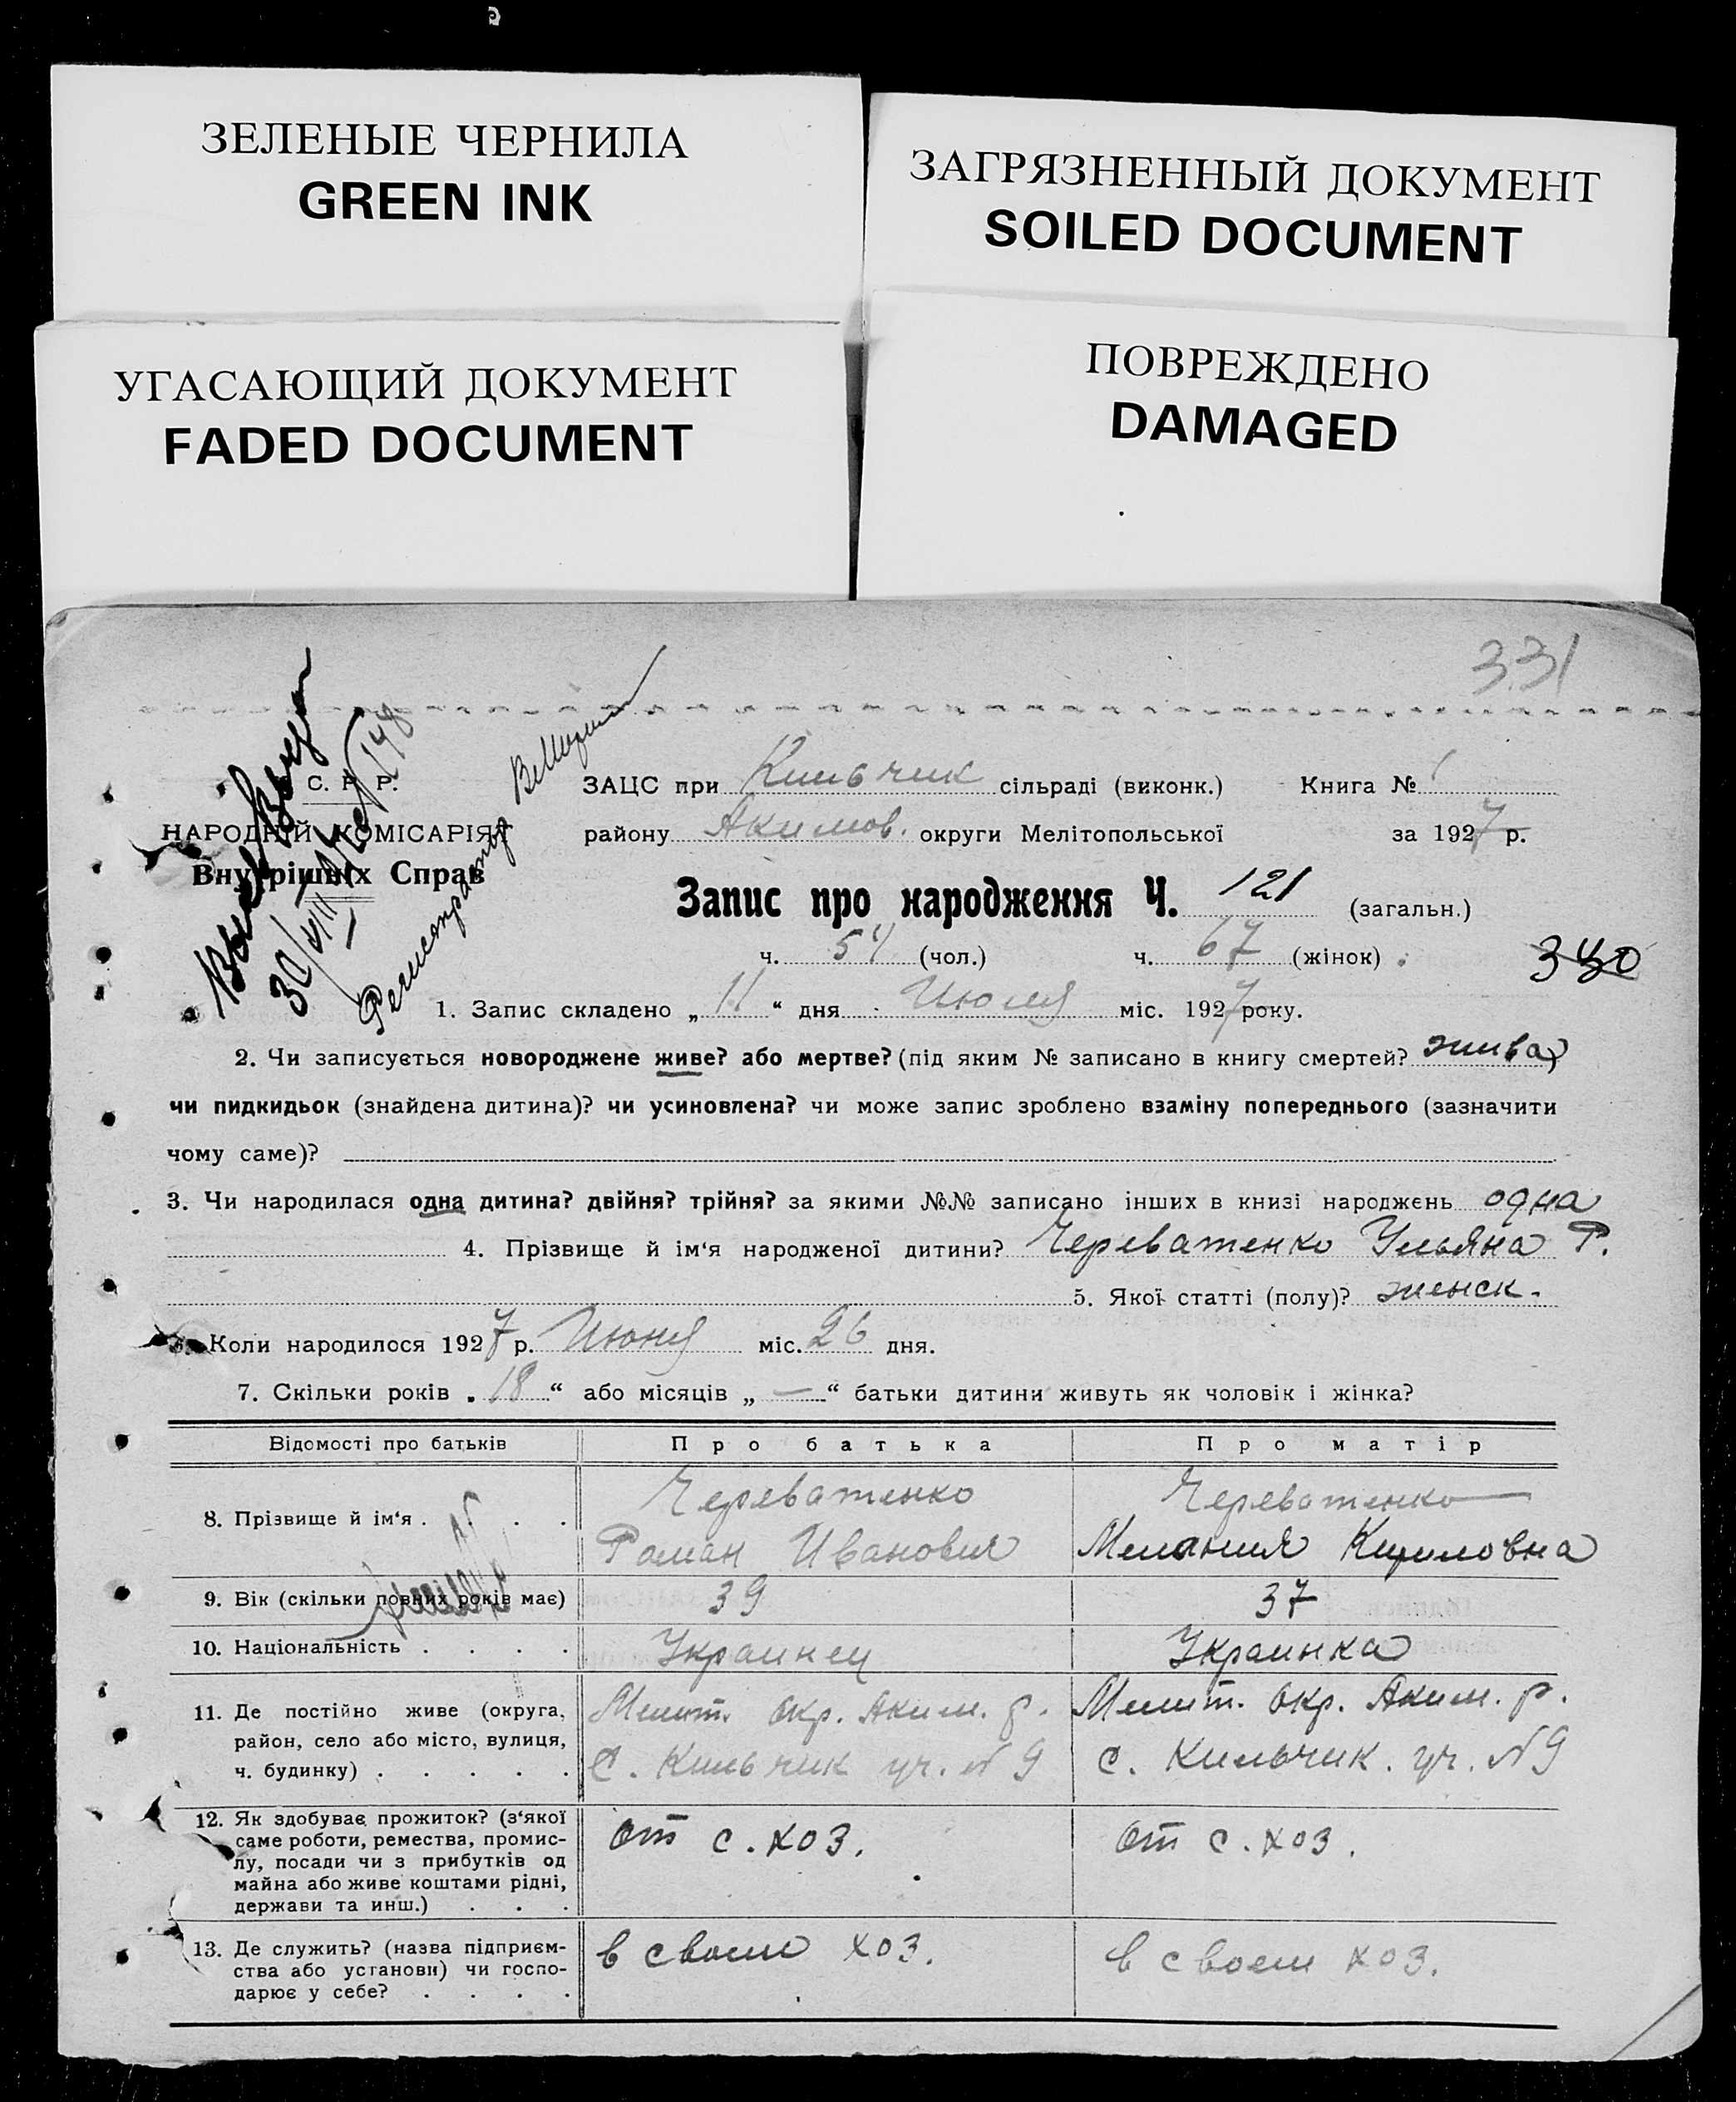 ЗЕЛЕНЫЕ ЧЕРНИЛА
GREEN INK
ЗАГРЯЗНЕННЫЙ ДОКУМЕНТ
SOILED DOCUMENT
УГАСАЮЩИЙ ДОКУМЕНТ
FADED DOCUMENT
ПОВРЕЖДЕНО
DAMAGED
331
С. Р. Р.
НАРОДНІЙ КОМІСАРІЯТ
Внутрішніх Справ
30/VIII
Регистратор
ЗАЦС при Кильчик сільраді (виконк.) Книга №
району Акимов. округи Мелітопольської за 1927 р.
Запис про народження Ч. 121 (загальн.)
ч. 54 (чол.) ч. 67 (жінок)
340
1. Запис складено „11“ дня Июля міс. 1927 року.
2. Чи записується новороджене живе? або мертве? (під яким № записано в книгу смертей? жива)
чи пидкидьок (знайдена дитина)? чи усиновлена? чи може запис зроблено взаміну попереднього (зазначити
чому саме)?
3. Чи народилася одна дитина? двійня? трійня? за якими №№ записано інших в книзі народжень одна
4. Прізвище й ім‘я народженої дитини? Череватенко Ульяна Р.
5. Якої статті (полу)? женск.
6. Коли народилося 1927 р. Июня міс. 26 дня.
7. Скільки років „18“ або місяців „—“ батьки дитини живуть як чоловік і жінка?
Відомості про батьків Про батька Про матір
8. Прізвище й ім‘я . . . . Череватенко Роман Иванович Череватенко Мелания Кириловна
9. Вік (скільки повних років має) 39 37
10. Національність . . . . Украинец Украинка
11. Де постійно живе (округа,
район, село або місто, вулиця,
ч. будинку) . . . . .
Мелит. окр. Аким. р.
С. Кильчик уч. N 9
Мелит. окр. Аким. р.
с. Кильчик. уч. N 9
12. Як здобуває прожиток? (з‘якої
саме роботи, ремества, промис-
лу, посади чи з прибутків од
майна або живе коштами рідні,
держави та инш.) . . .
от с. хоз.
от с. хоз.
13. Де служить? (назва підприєм-
ства або установи) чи госпо-
дарює у себе? . . . .
в своем хоз.
в своем хоз.